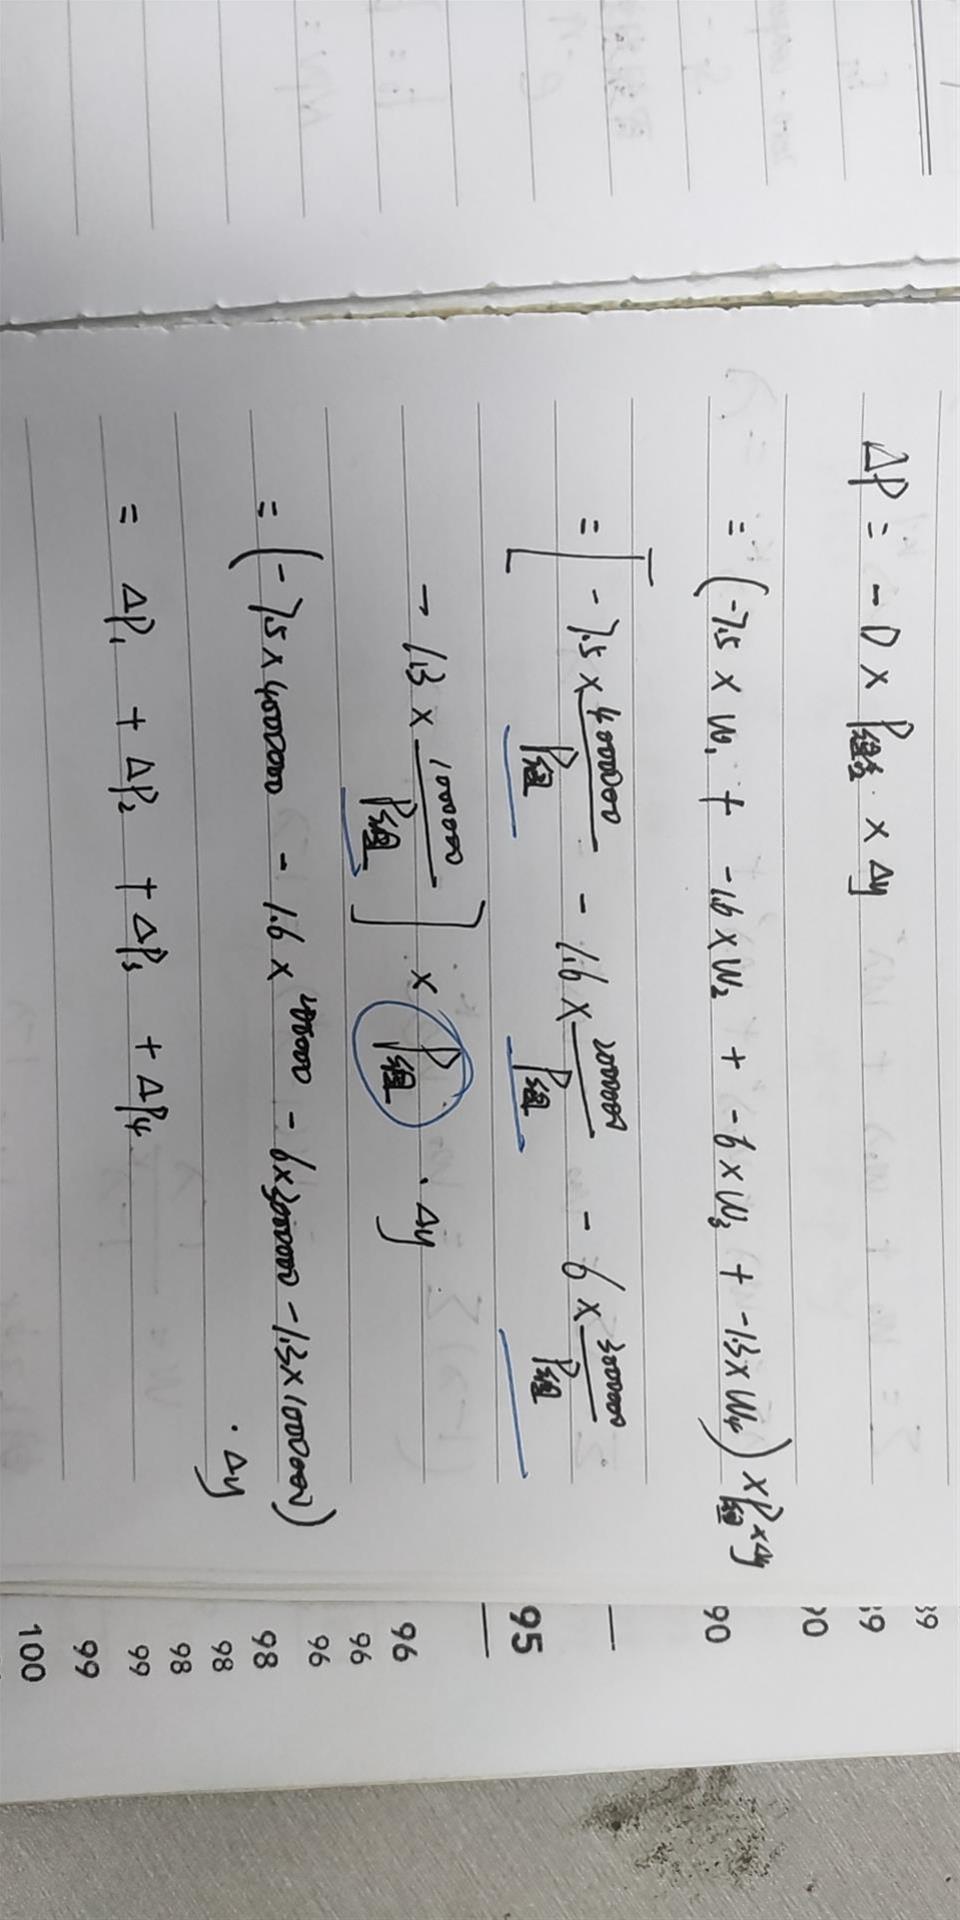 ΔP = - D × P组合 × Δy
= (-7.5 × W₁ + -1.6 × W₂ + -6 × W₃ + -1.3 × W₄) × P组 × Δy
= [ - 7.5 × 4000000/P组 - 1.6 × 2000000/P组 - 6 × 3000000/P组
- 1.3 × 1000000/P组 ] × P组 · Δy
= (- 7.5 × 4000000 - 1.6 × 2000000 - 6 × 3000000 - 1.3 × 1000000)
· Δy
= ΔP₁ + ΔP₂ + ΔP₃ + ΔP₄
89
89
90
90
95
96
96
96
98
98
98
99
99
100